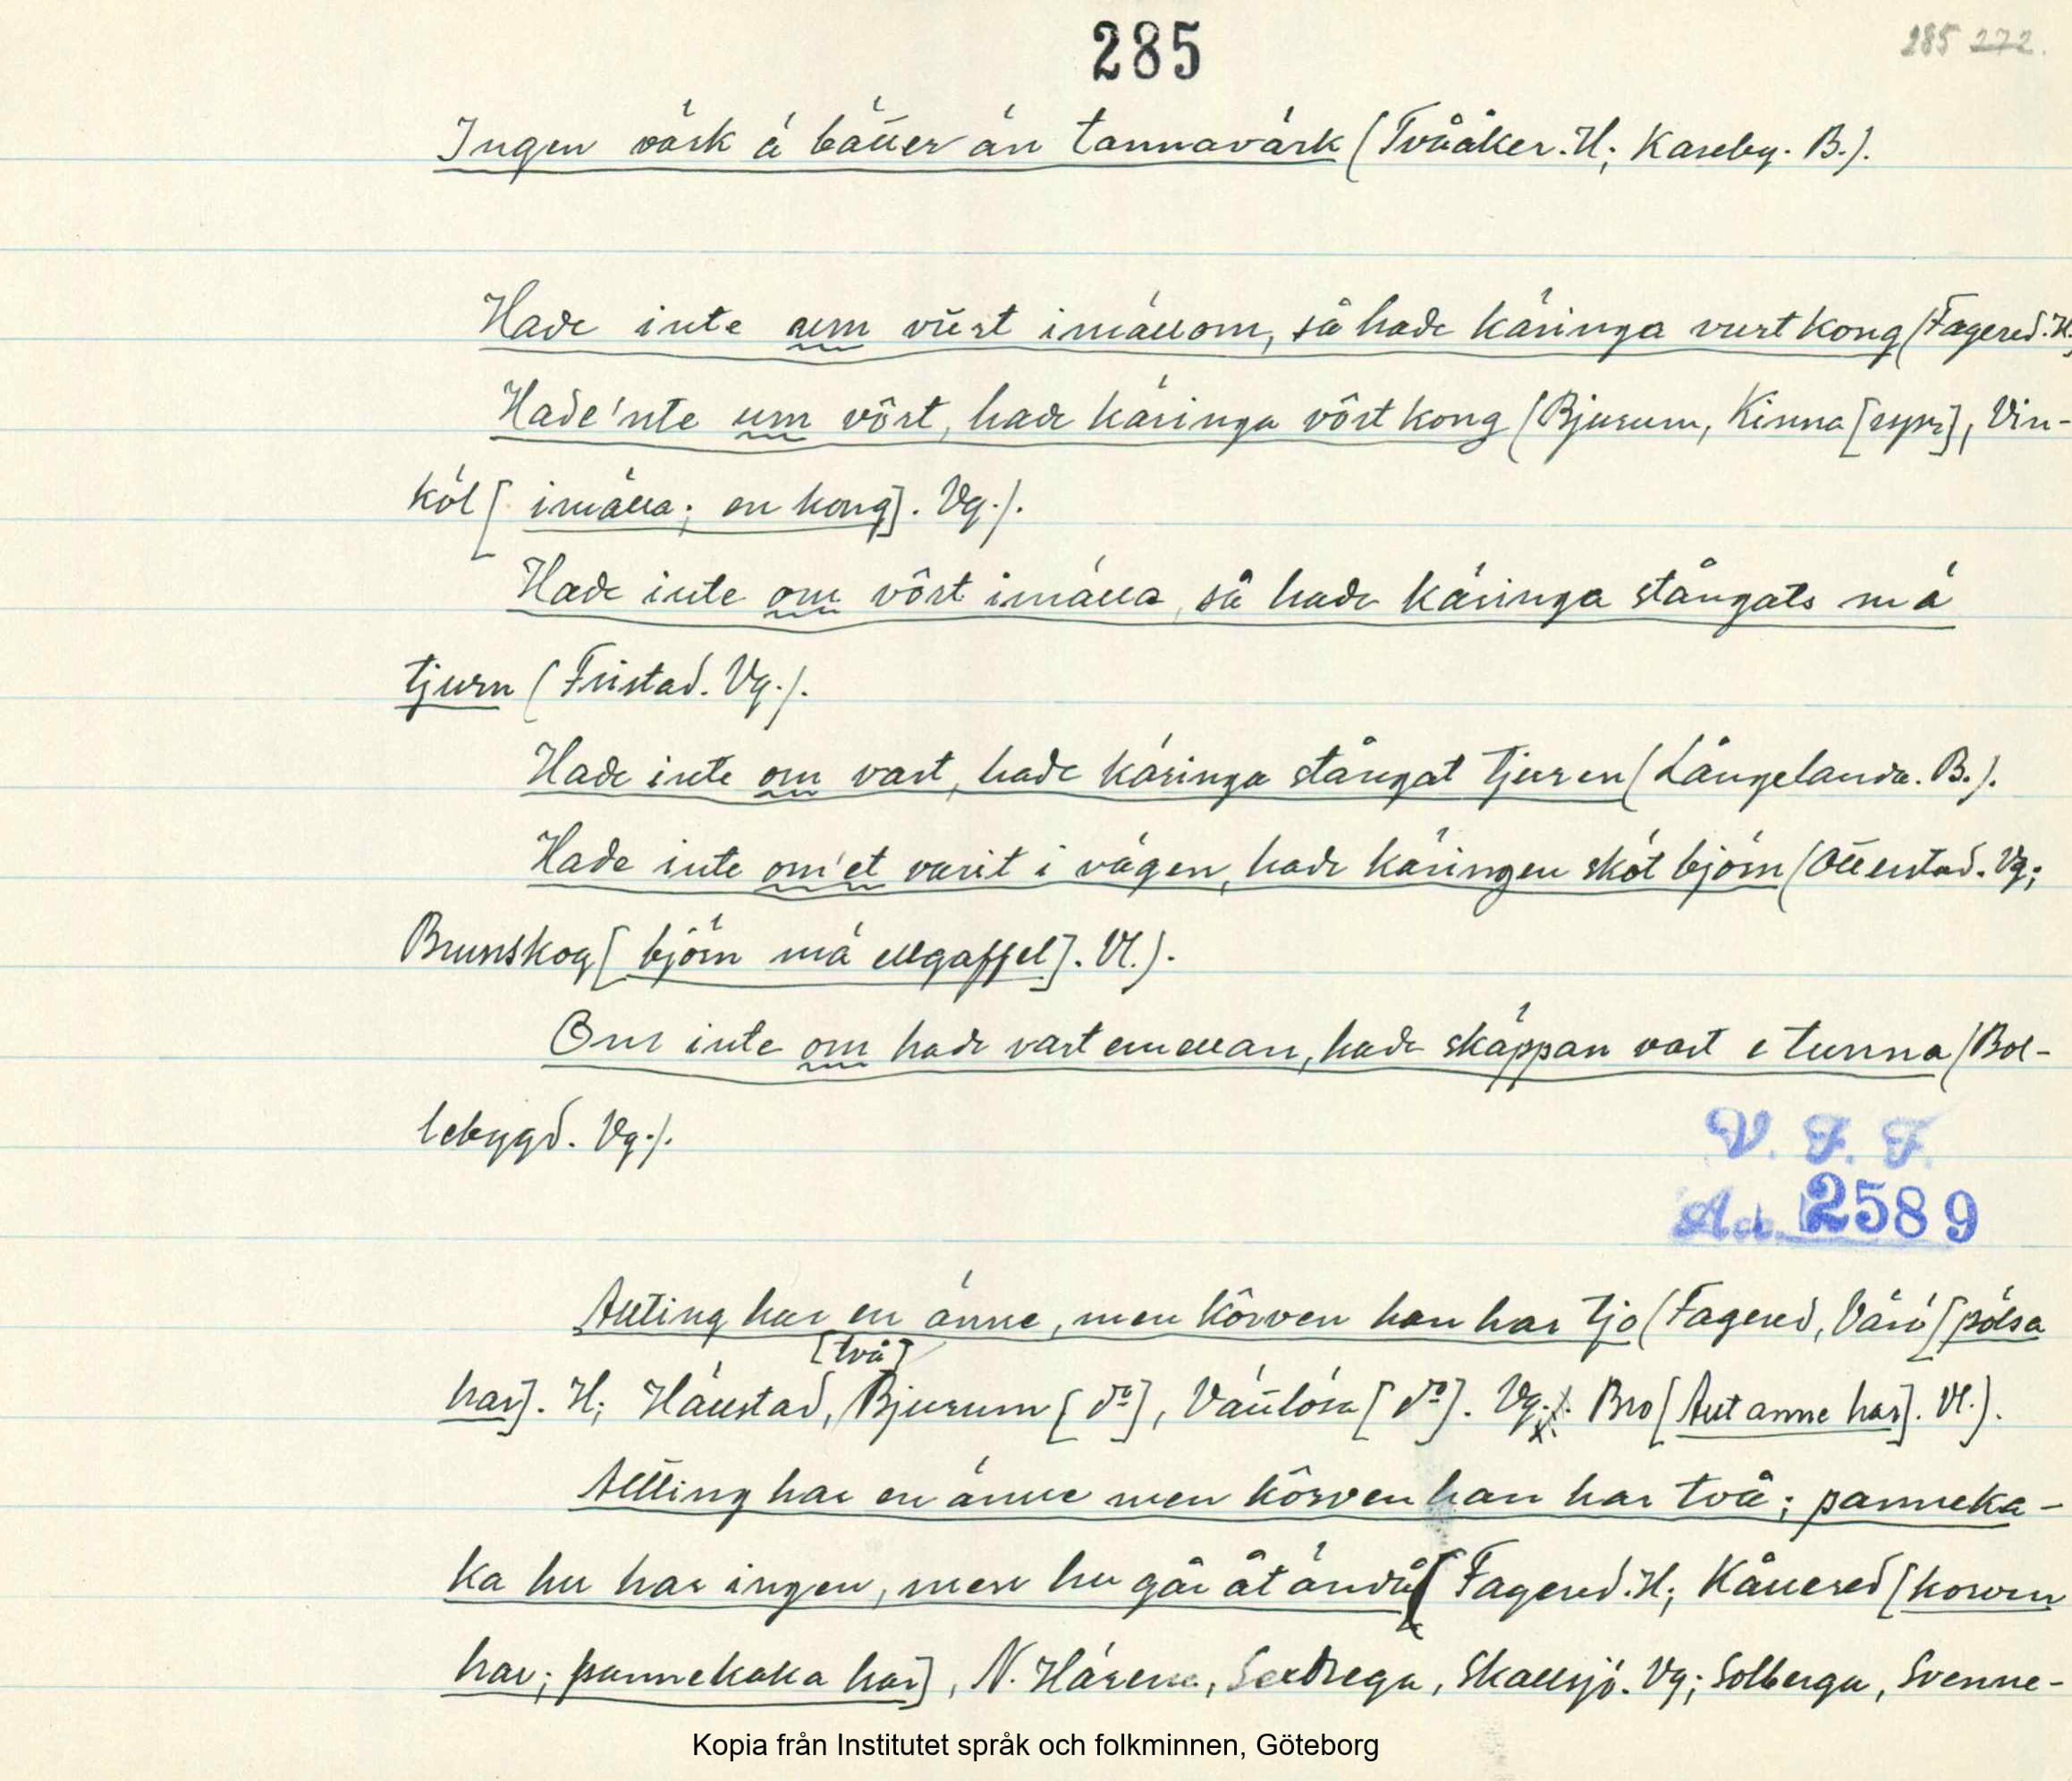 285
285 272.
Ingen värk ä bätter än tannavärk (Tvååker. H; Kareby. B.).
Hade inte um vurt imällom, så hade käringa vurt kong (Fagered. H.;
Hade'nte um vôrt, hade käringa vôrt kong (Bjurum, Kinna [espr], Vin-
köl [imälla; en kong]. Vg.).
Hade inte om vôrt imälla, så hade käringa stångats mä
tjurn (Fristad. Vg.).
Hade inte om vart, hade käringa stångat tjuren (Långelanda. B.).
Hade inte om'et varit i vägen, hade käringen sköt björn (Ollestad. Vg;
Brunskog [björn mä ellgaffel]. Vl.).
Om inte om hade vart emellan, hade skäppan vart e tunna (Bol-
lebygd. Vg.).
V. F. F.
Ac. 2589
Allting har en änne, men kôrven han har tjo (Fagered, Värö [pölsa
[två]
har]. H; Hällstad, Bjurum [do], Väŕlösa [do]. Vg.; Bro [Allt änne har]. Vl.).
Allting har en änne men kôrven han har två; panneka-
ka hu har ingen, men hu går åt ändå (Fagered. H; Kållered [korven
har; pannekaka har], N. Härene, Sexdrega, Skallsjö. Vg; Solberga, Svenne-
Kopia från Institutet språk och folkminnen, Göteborg